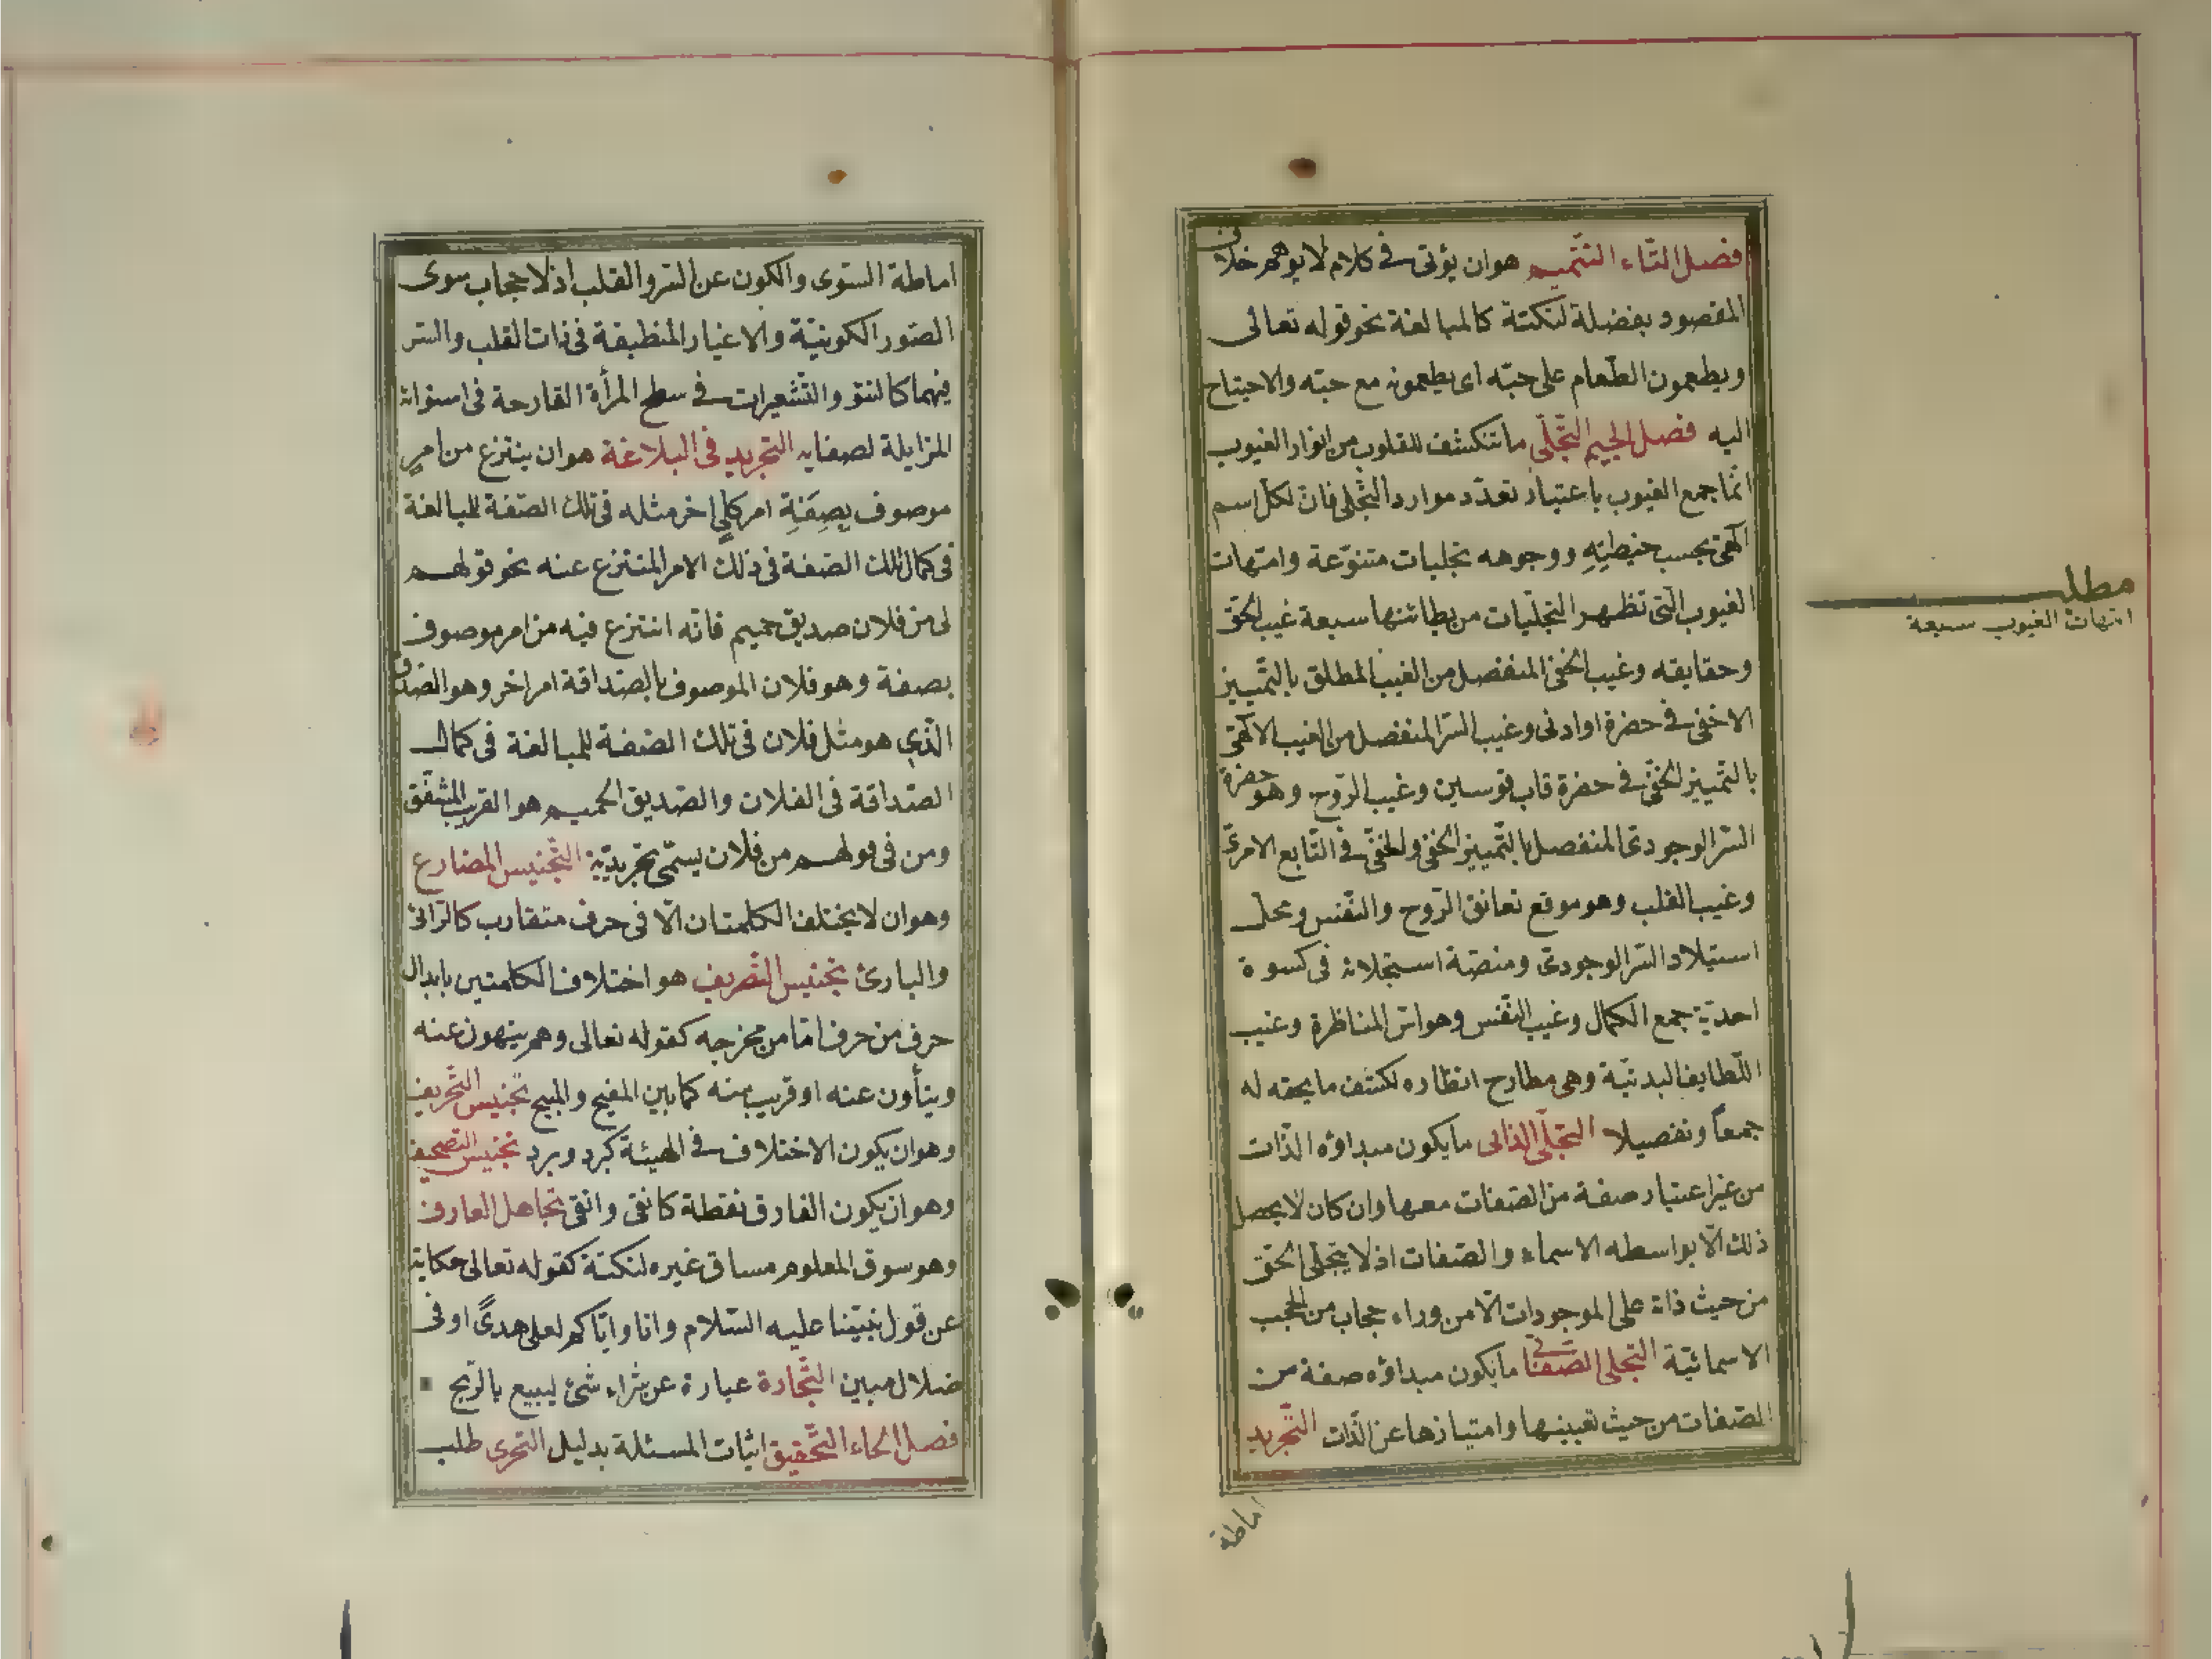 فصل التاء التتميم هو ان يؤتى في كلام لا يوهم خلاف
المقصود بفضلة لنكتة كالمبالغة نحو قوله تعالى
ويطعمون الطعام على حبّه اى يطعمونه مع حبّه والاحتياج
اليه فصل الجيم التجلّى ما تنكشف للقلوب من انوار الغيوب
انّما جمع الغيوب باعتبار تعدّد موارد التجلى فان لكل اسم
آلهى بحسب حيطته ووجوهه تجليات متنوّعة وامّهات
الغيوب التى تظهر التجلّيات من بطائنها سبعة غيب الحق
وحقايقه وغيب الخفى المنفصل من الغيب المطلق بالتمييز
الاخفى في حضرة او ادنى وغيب السّر المنفصل من الغيب الالهى
بالتمييز الخفى في حضرة قاب قوسين وغيب الرّوح وهو حضرة
السّر الوجودى المنفصل بالتّمييز الاخفى والخفى في التّابع الامرىّ
وغيب القلب وهو موقع تعانق الرّوح والنّفس ومحل
استيلاد السّر الوجودىّ ومنصّة استجلائه فى كسوة
احديّة جمع الكمال وغيب النّفس وهو انس المناظرة وغيب
اللّطايف البدنيّة وهى مطارح انظاره لكشف ما يحقه له
جمعاً وتفصيلا التجلّى الذاتى ما يكون مبداؤه الذّات
من غير اعتبار صفة من الصّفات معها وان كان لا يحصل
ذلك الّا بواسطه الاسماء والصّفات اذ لا يتجلى الحقّ
من حيث ذاته على الموجودات الّا من وراء حجاب من الحجب
الاسمائيّة التجلى الصفاتى ما يكون مبداؤه صفة من
الصّفات من حيث تعيينها وامتيازها عن الذّات التّجريد
اماطة
مطلب
امّهات الغيوب سبعة
اماطة السّوى والكون عن السّر والقلب اذ لا حجاب سوى
الصّور الكونيّة والاغيار المنطبعة فى ذات القلب والسّر
فيهما كالنتو والتّشعيرات في سطح المرأة القادحة فى استوائه
المزايلة لصفايه التجريد فى البلاغة هو ان ينتزع من امرٍ
موصوف بِصِفَةِ امر كلّى اخر مثله فى تلك الصّفة للمبالغة
فى كمال تلك الصّفة فى ذلك الامر المنتزع عنه نحو قولهم
لى من فلان صديق حميم فانّه انتزع فيه من امر موصوف
بصفة وهو فلان الموصوف بالصّداقة امر اخر وهو الصّديق
الّذى هو مثل فلان فى تلك الصّفة للمبالغة فى كمال
الصّداقة فى الفلان والصّديق الحميم هو القريب المشفّق
ومن فى قولهم من فلان يسمّى تجريديّة التّجنيس المضارع
وهو ان لا يختلف الكلمتان الّا فى حرف متقارب كالزائى
والبارئ تجنيس التّصريف هو اختلاف الكلمتين بابدال
حرف من حرف امّا من مخرجه كقوله تعالى وهم ينهون عنه
وينأون عنه او قريب منه كما بين المفيح والمبيح تجنيس التّحريف
وهو ان يكون الاختلاف في الهيئة كبرد وبرد تجنيس التصحيف
وهو ان يكون الفارق نقطة كانقى واتقى تجاهل العارف
وهو سوق المعلوم مساق غيره لنكتة كقوله تعالى حكاية
عن قول نبيّنا عليه السّلام وانا وايّاكم لعلى هدىً او فى
ضلال مبين التّجارة عبارة عن شراء شئ ليبيع بالرّبح
فصل الحاء التّحقيق اثبات المسئلة بدليل التحرى طلب